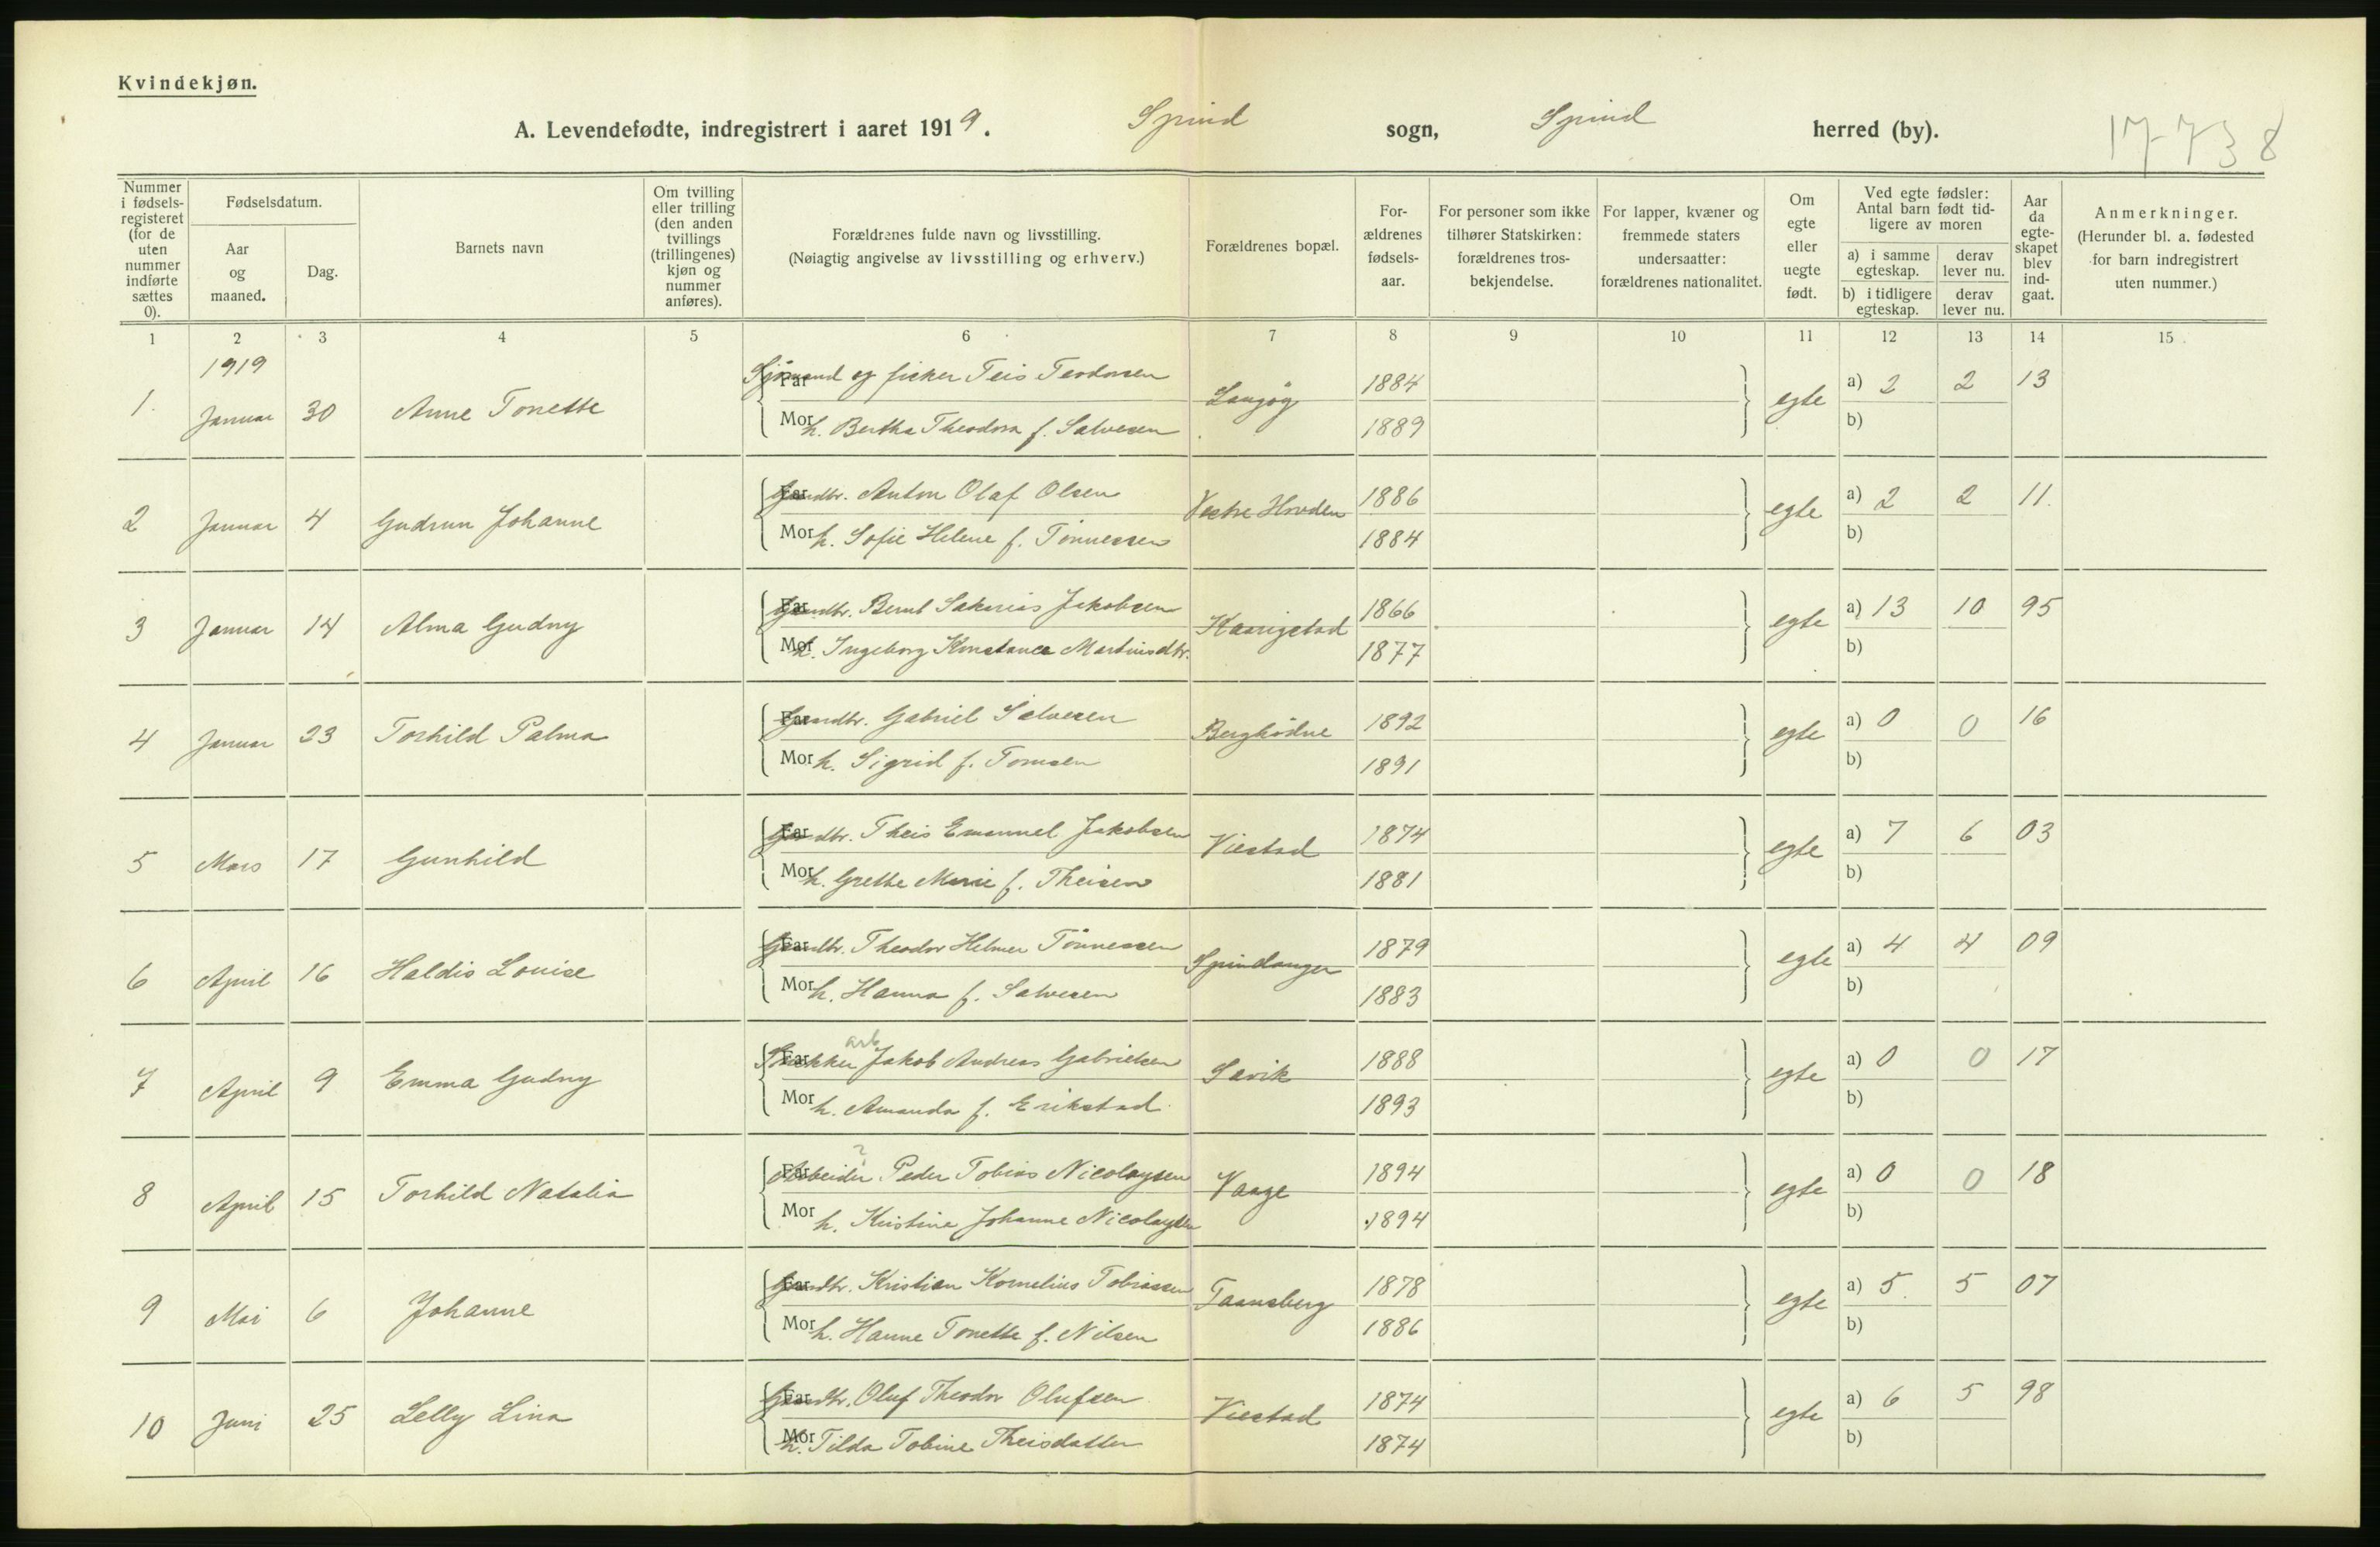 Kvindekjøn.
A. Levendefødte, indregistrert i aaret 1919. Spind sogn, Spind herred (by). 17-738
Nummer i fødselsregisteret (for de uten nummer indførte sættes 0).
Fødselsdatum.
Aar og maaned.
Dag.
Barnets navn
Om tvilling eller trilling (den anden tvillings (trillingenes) kjøn og nummer anføres).
Forældrenes fulde navn og livsstilling.
(Nøiagtig angivelse av livsstilling og erhverv.)
Forældrenes bopæl.
Forældrenes fødselsaar.
For personer som ikke tilhører Statskirken: forældrenes trosbekjendelse.
For lapper, kvæner og fremmede staters undersaatter: forældrenes nationalitet.
Om egte eller uegte født.
Ved egte fødsler: Antal barn født tidligere av moren
a) i samme egteskap.
derav lever nu.
b) i tidligere egteskap.
derav lever nu.
Aar da egteskapet blev indgaat.
Anmerkninger.
(Herunder bl. a. fødested for barn indregistrert uten nummer.)
1 2 3 4 5 6 7 8 9 10 11 12 13 14 15
1919
1. Januar 30 Anne Tonette Far Sjömand og fisker Teis Teodorsen Langög 1884 egte a) 2 2 13
Mor h. Bertha Theodora f. Salvesen 1889 b)
2 Januar 4 Gudrun Johanne Far Gaardbr. Anton Olaf Olsen Vestre Hovden 1886 egte a) 2 2 11.
Mor h. Sofie Helene f. Tönnessen 1884 b)
3 Januar 14 Alma Gudny Far Gaardbr. Bernt Sakarias Jakobsen Kaarigstad 1866 egte a) 13 10 95
Mor h. Ingeborg Konstance Martinsdtr. 1877 b)
4 Januar 23 Torhild Palma Far Gaardbr. Gabriel Salvesen 1892 egte a) 0 0 16
Mor h. Sigrid f. Tomsen 1891 b)
5 Mars 17 Gunhild Far Gaardbr. Theis Emanuel Jakobsen Viestad 1874 egte a) 7 6 03
Mor h. Grethe Marie f. Theisen 1881 b)
6 April 16 Haldis Louise Far Gaardbr. Theodor Helmer Tönnessen Spindanger 1879 egte a) 4 4 09
Mor h. Hanna f. Salvesen 1883 b)
arb
7 April 9 Emma Gudny Far Jakob Andreas Gabrielsen Savik 1888 egte a) 0 0 17
Mor h. Amanda f. Erikstad 1893 b)
?
8 April 15 Torhild Natalia Far Arbeider Peder Tobias Nicolaysen Vaage 1894 egte a) 0 0 18
Mor h. Kristine Johanne Nicolaysen 1894 b)
9 Mai 6 Johanne Far Gaardbr. Kristian Kornelius Tobiassen Taansberg 1878 egte a) 5. 5 07
Mor h. Hanne Tonette f. Nilsen 1886 b)
10 Juni 25 Lelly Lina Far Gaardbr. Oluf Theodor Olufsen Viestad 1874 egte a) 6 5 98
Mor h. Tilda Tobine Theisdatter 1874 b)